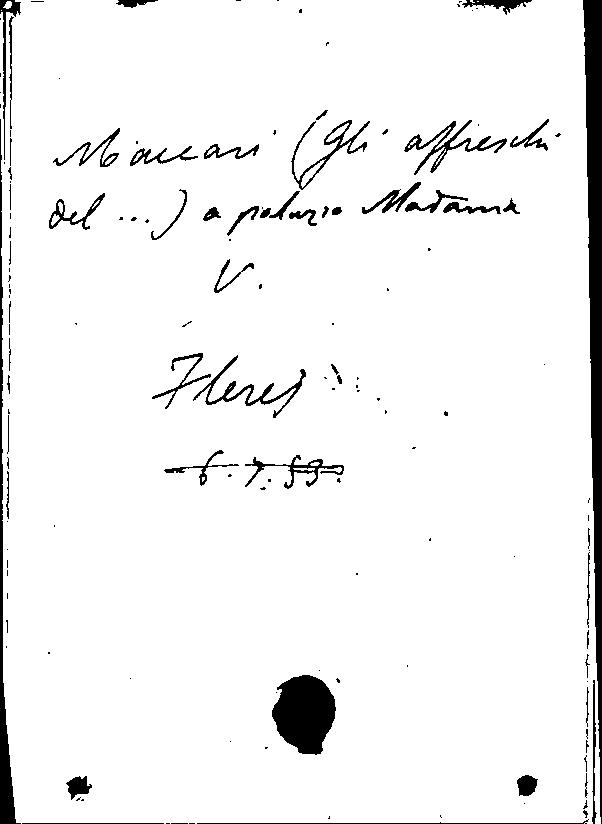 Maccari (Gli affreschi
del ...) a palazzo Madama
V.
Fleres
6.7.53.